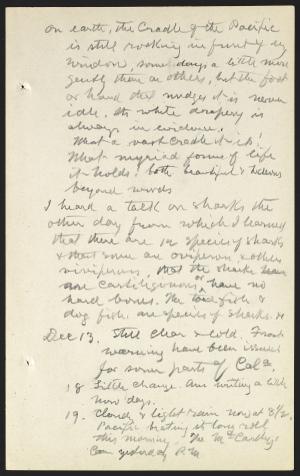 on earth, the Cradle of the Pacific
is still rocking in front of my
window, some days a little more
gently than on others, but the foot
or hand that nudges it is never
idle. Its white drapery is
always in evidence.
What a vast Cradle it is!
What myriad forms of life
it holds! both beautiful & hideous
beyond words
I heard a talk on sharks the
other day from which I learned
that there are 12 species of sharks
& that some are oviperous & others
viviperous, that the sharks
are cartilaginous or have no
hard bones. The toad fish &
dog fish are species of sharks.
Dec 13. Still clear & cold. Frost
warning have been issued
for some parts of Cala.
18 Little change. Am writing a little
now days.
19. Cloudy & light rain now at 8 1/2.
Pacific beating its long roll
this morning. The McCarthys
Came yesterday P.M.